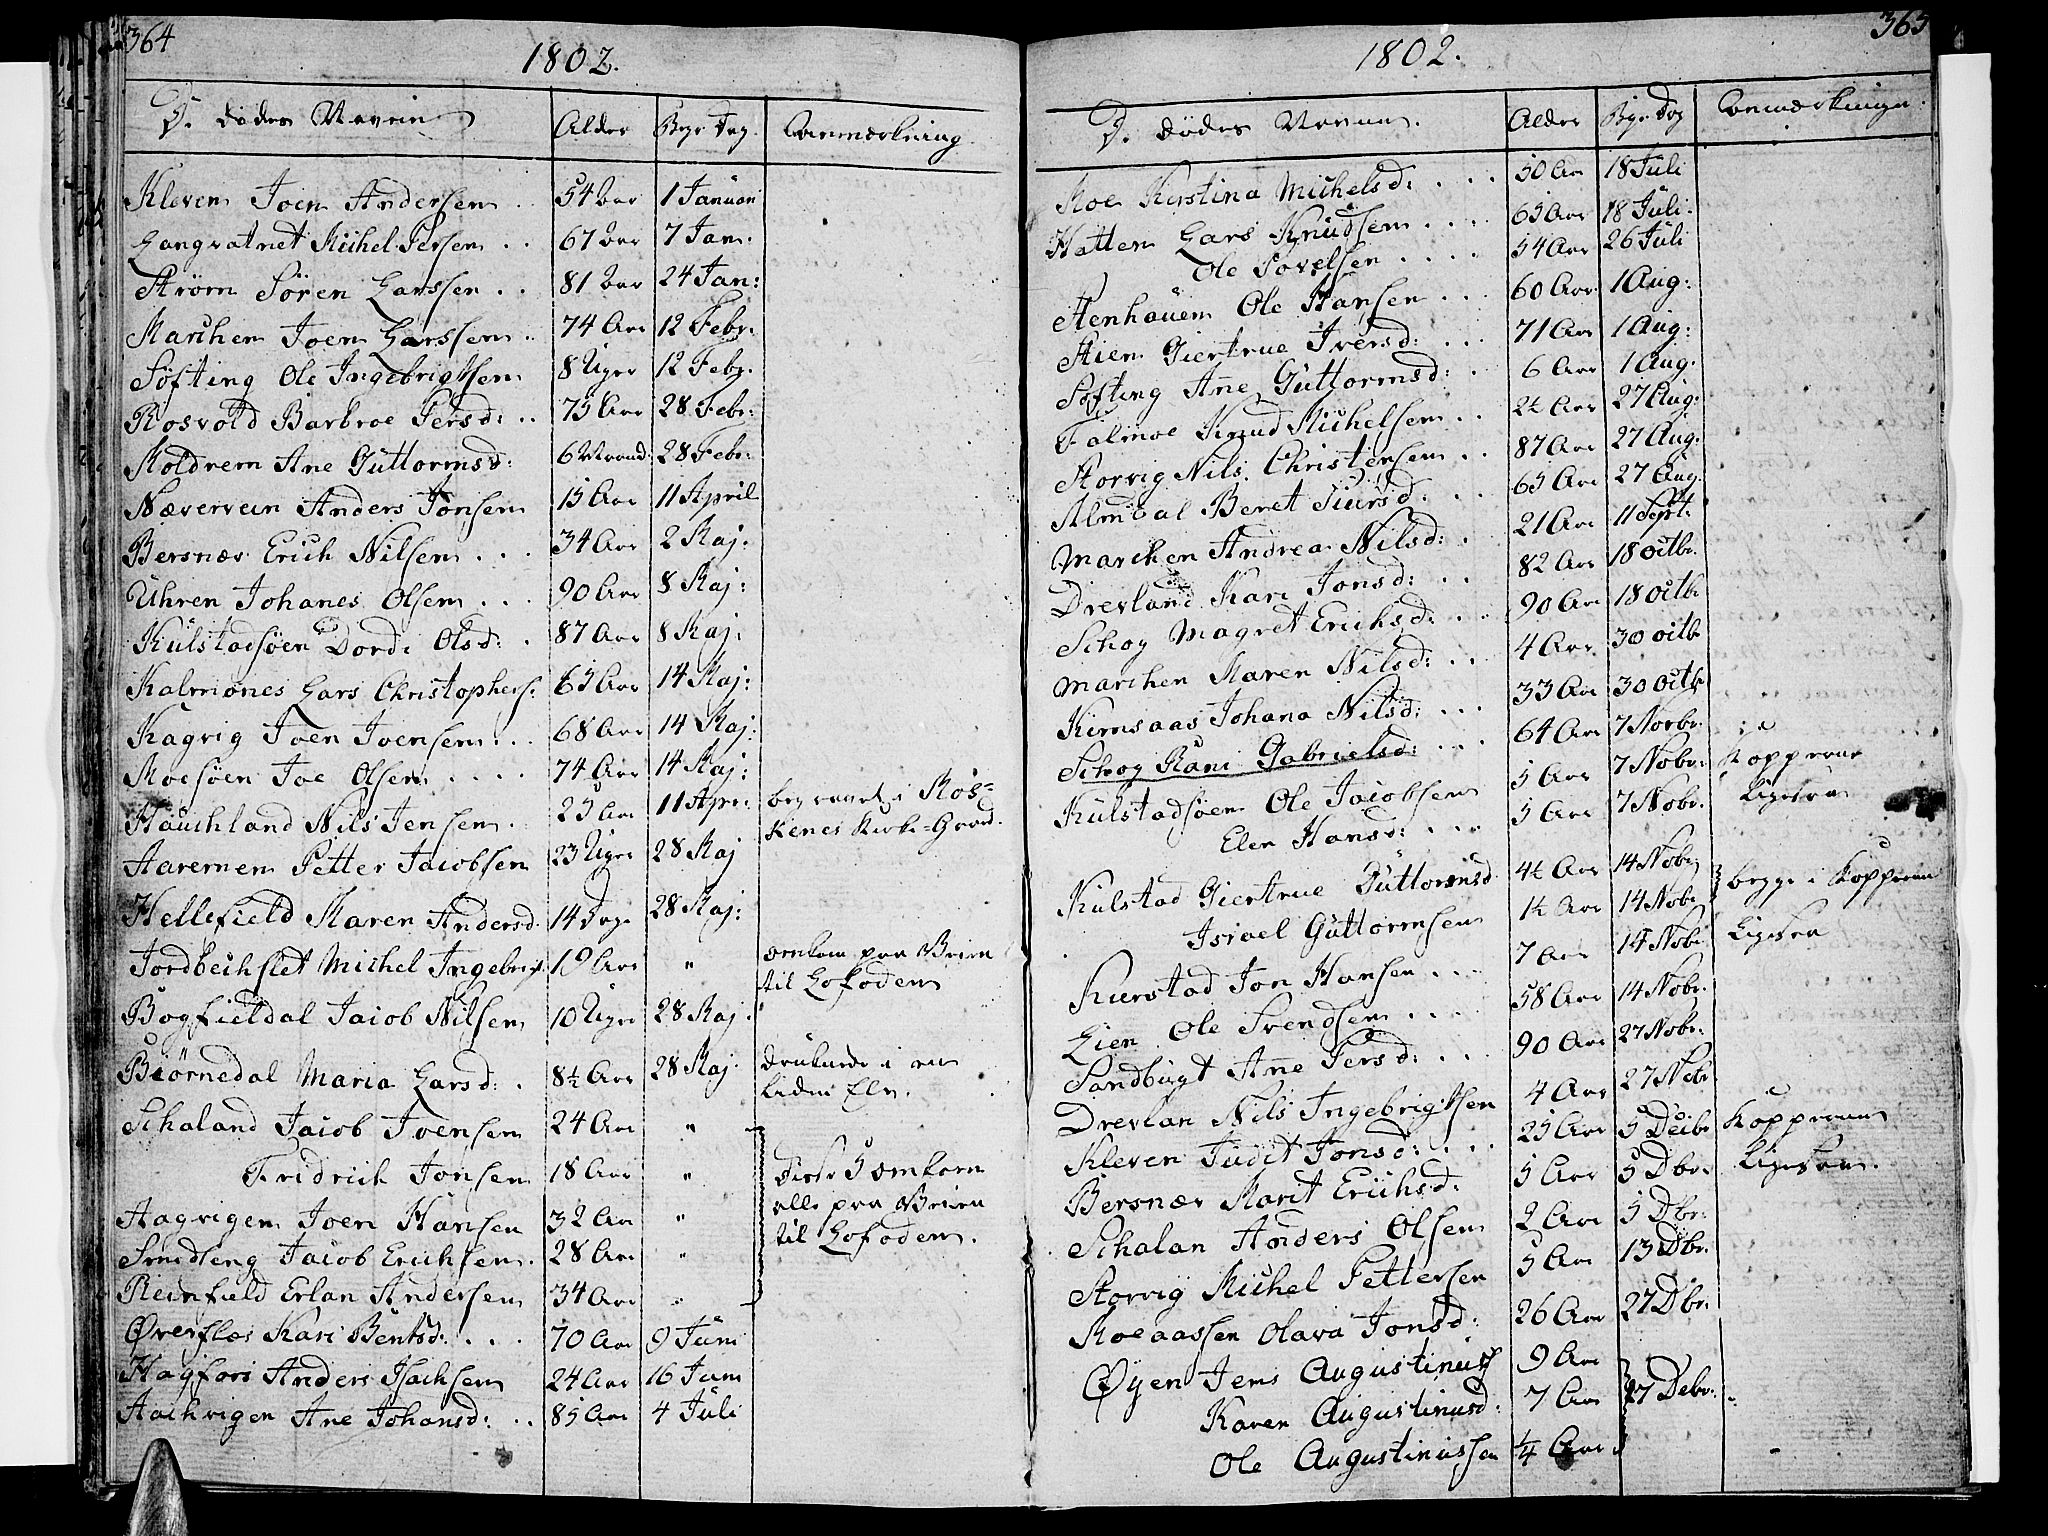 364
1802.
D. dødes Navne
Alder
Begr. Dag
Anmærkning
Kleven Joen Andersen . . 54 Aar 1 Januari
Langvatnet Michel Persen . . 67 Aar 7 Jan.
Strøm Søren Larssen . . 81 Aar 24 Jan:
Marchen Joen Larssen . . 74 Aar 12 Febr.
Søfting Ole Ingebrigtsen 8 Uger 12 Febr.
Rosvold Barbroe Persd: . . 75 Aar 28 Febr:
Moldrem Ane Guttormsd: 6 Maaned: 28 Febr:
Nævervein Anders Jonsen 15 Aar 11 April
Bersnæs Erich Nilsen . . . 34 Aar 2 Maj:
Uhren Johanes Olsen . . . 90 Aar 8 Maj:
Kulstadsøen Dordi Olsd: . 87 Aar 8 Maj:
Kalmønes Lars Christophers: 65 Aar 14 Maj:
Kagvig Joen Joensen . . . 68 Aar 14 Maj:
Moesøen Joe Olsen . . . . 74 Aar 14 Maj:
Hauchland Nils Jensen . 25 Aar 11 Apr: begravet i Røs=
kenes Kirke-Gaard.
Aaremen Petter Jacobsen 23 Uger 28 Maj
Hellefield Maren Andersd. 14 Dage 28 Maj:
Jordbechslet Michel Ingebrigts. 19 Aar " omkom paa Veien
til Lofoden
Bogfieldal Jacob Nilsen 10 Uger 28 Maj.
Biørnedal Maria Larsd: . 8½ Aar 28 Maj. druknede i en
liden Elv.
Schaland Jacob Joensen 24 Aar "
Fridrich Jonsen 18 Aar " Disse 5 omkom
Aagvigen Joen Hansen 32 Aar " alle paa Veien
Smedseng Jacob Erichsen . 28 Aar " til Lofoden.
Reinfield Erlan Andersen 34 Aar "
Øverflæs Kari Bentsd: . . . 70 Aar 9 Juni
Hagfors Anders Isachsen 24 Aar 16 Juni
Aachvigen Ane Johansd: . . 85 Aar 4 Juli
365
1802.
D. dødes Navne.
Alder
Begr. Dag
Anmærkninger.
Moe Kirstina Michelsd: . . . 50 Aar 18 Juli
Hatten Lars Knudsen . . . . 65 Aar 18 Juli.
Ole Povelsen . . . . 54 Aar 26 Juli
Stenhauen Ole Hansen . . . 60 Aar 1 Aug:
Stien Giertrue Iversd: . . . 71 Aar 1 Aug:
Søfting Ane Guttormsd: . 6 Aar 1 Aug:
Falmoe Knud Michelsen . . 2½ Aar 27 Aug:
Storvig Nils Christensen . . 87 Aar 27 Aug:
Almdal Beret Siursd. . . . 65 Aar 27 Aug.
Marchen Andrea Nilsd: . 21 Aar 11 Sept:
Drevland Kari Jonsd: . . 82 Aar 18 Octbr.
Schog Magret Erichsd: . . 90 Aar 18 Octb
Marchen Maren Nilsd: . . 4 Aar 30 Octb
Kiemsaas Johana Nilsd: . . . 33 Aar 30 Octb
Schog Rani Gabrielsd: . . . 64 Aar 7 Novbr.
Kulstadsøen Ole Jacobsen 5 Aar 7 Nobr. Kopperne
Elen Hansd: . . . 5 Aar 7 Nobr. ligesaa
Kulstad Giertrue Guttormsd 4½ Aar 14 Nobr begge i Kopperne
Israel Guttormsen 1½ Aar 14 Nobr
Kierstad Jon Hansen . . . 7 Aar 14 Nobr ligesaa
Lien Ole Svendsen . . . . 58 Aar 14 Nobr.
Sandbugt Ane Persd: . . . 90 Aar 27 Nobr.
Drevlan Nils Ingebrigtsen 4 Aar 27 Nobr
Kleven Judit Jonsd: . . . 25 Aar 5 Decbr Kopperne
Bersnæs Marit Erichsd: 5 Aar 5 Dbr. ligesaa.
Schalan Anders Olsen 2 Aar 5 Dbr.
Storvig Michel Pettersen 5 Aar 13 Dbr.
Moeaassen Olava Jonsd: 26 Aar 27 Dbr.
Øyen Jens Augustinus 9 Aar
Karen Augustinusd: 7 Aar 27 Debr.
Ole Augustinussen ¼ Aar